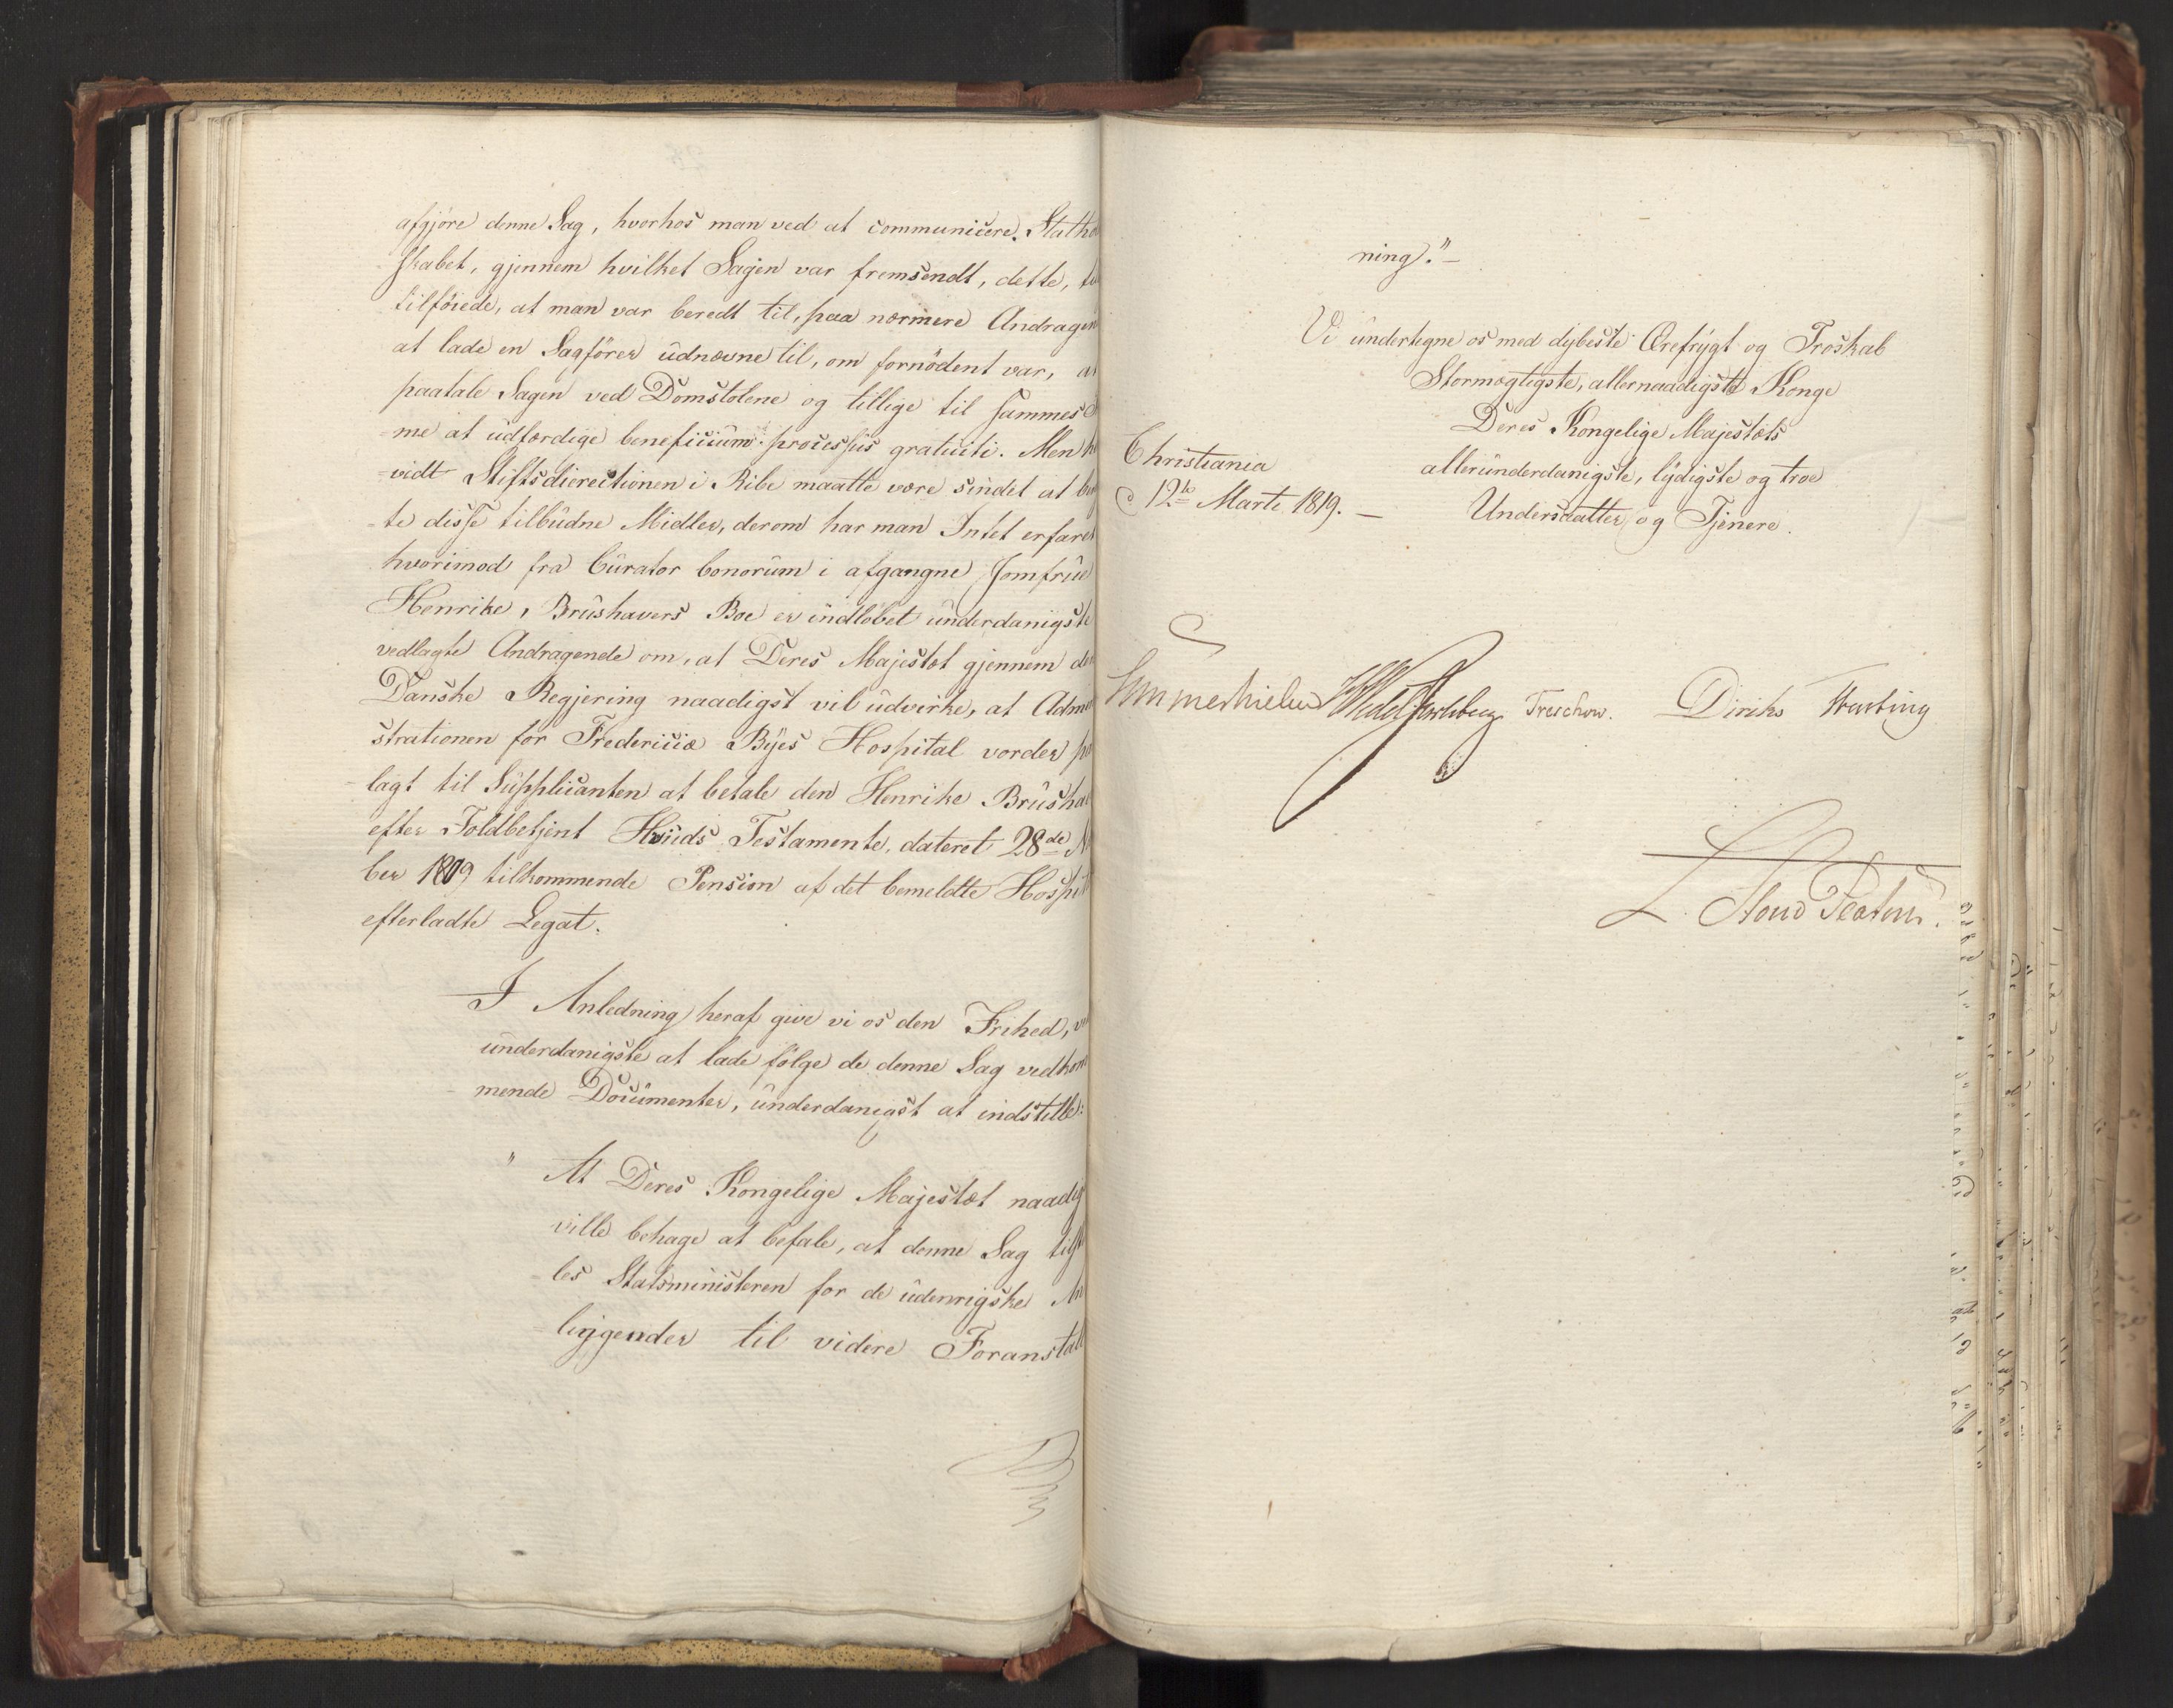 afgjöre denne Sag, hvorhos man ved at communicere Statho
skabet, gjennem hvilket Sagen var fremsendt, dette,
tilföiede, at man var beredt til, paa nærmere Andragen
at lade en Sagförer udnævne til, om fornödent var, a
paatale Sagen ved Domstolene og tillige til sammes
=me at udfærdige beneficium processus gratuiti. Men
=vidt Stiftsdirectionen i Ribe maatte være sindet at
=te disse tilbudne Midler, derom har man Intet erfaret
hvorimod fra Curator bonorum i afgangne Jomfrue
Henrike Brushavers Boe er indlöbet underdanigste
vedlagte Andragende om, at Deres Majestæt gjennem den
Danske Regjering naadigst vil udvirke, at Admi
strationen for Fredericiæ Byes Hospital vorder pa
lagt til Supplicanten at betale den Henrike Brusha
efter Toldbetjent Hvids Testamente, dateret 28de N
ber 1809 tilkommende Pension af det bemeldte Hospit
efterladte Legat.
I Anledning heraf give vi os den Frihed, v
underdanigste at lade fölge de denne Sag vedkom
mende Documenter, underdanigst at indstille:
" At Deres Kongelige Majestæt naadig
ville behage at befale, at denne Sag tilst
les Statsministeren for de udenrigske An
liggender til videre Foranstalt
ning."—
Vi undertegne os med dybeste Ærefrygt og Troskab
Stormægtigste, allernaadigste Konge
Deres Kongelige Majestæts
allerunderdanigste, lydigste og troe
Undersaatter og Tjenere.
Christiania
d 12te Marts 1819. —
Sommerhielm Wedel Jarlsberg Treschow. Diriks Hæsting
L. Stoud Platou.